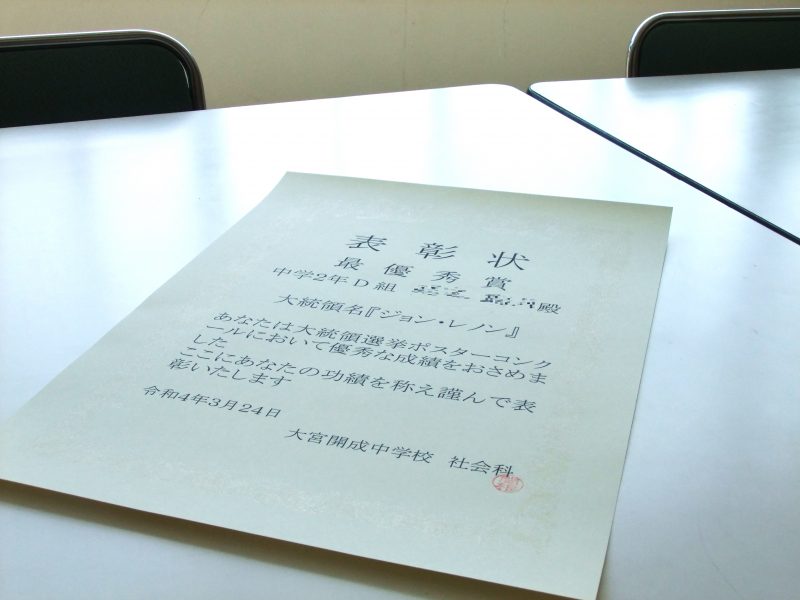 表彰状
最優秀賞
中学2年D組 殿
大統領名『ジョン・レノン』
あなたは大統領選挙ポスターコンク
ールにおいて優秀な成績をおさめま
した
ここにあなたの功績を称え謹んで表
彰いたします
令和4年3月24日
大宮開成中学校 社会科